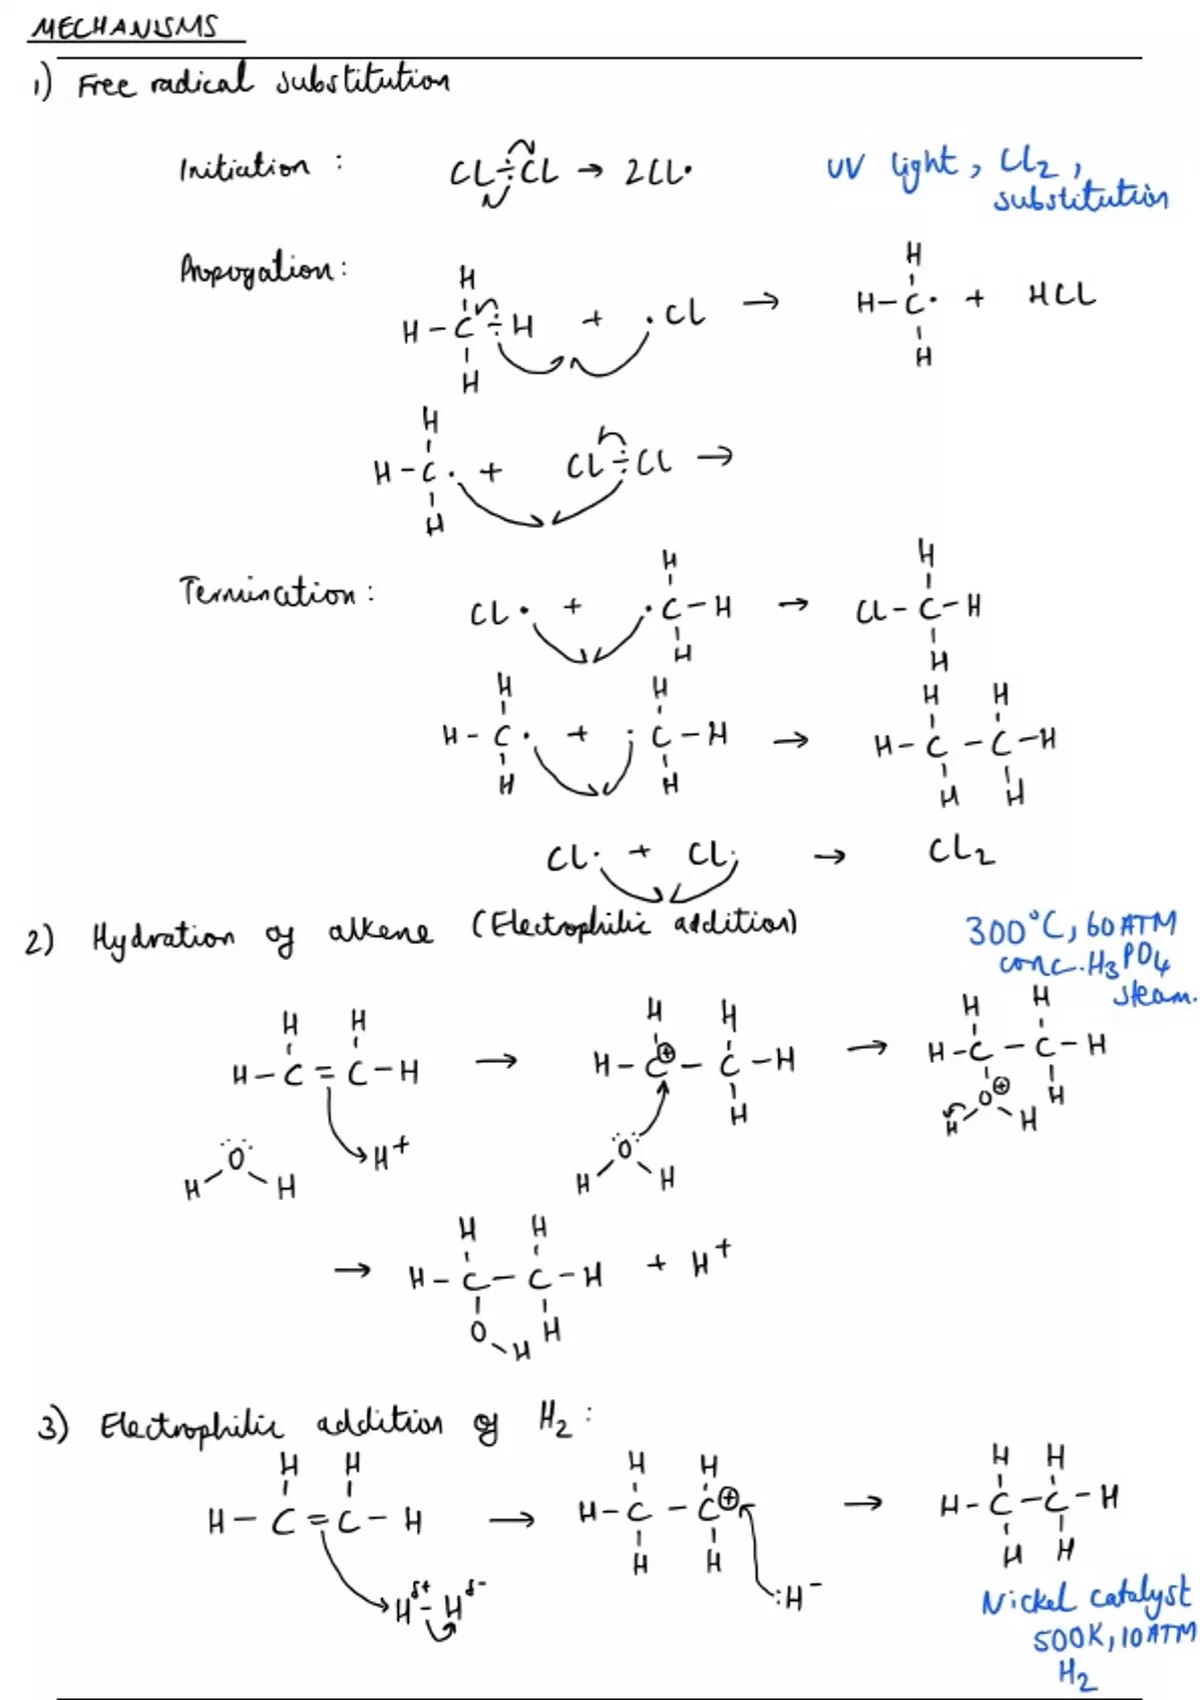 MECHANISMS
1) Free radical substitution
Initiation : Cl÷Cl → 2Cl• UV light, Cl2,
substitution
Propogation:
H H
H-C÷H + •Cl → H-C• + HCl
H H
H
H-C• + Cl÷Cl →
H
Termination:
H H
Cl• + •C-H → Cl-C-H
H H
H H H H
H-C• + •C-H → H-C-C-H
H H H H
Cl• + Cl• → Cl2
2) Hydration of alkene (Electrophilic addition) 300°C, 60 ATM
conc. H3PO4
steam.
H H H H H H
H-C=C-H → H-C⊕-C-H → H-C-C-H
H O⊕ H
H H
H+
O O
H H H H
H H
→ H-C-C-H + H+
O H
H
3) Electrophilic addition of H2 :
H H H H H H
H-C=C-H → H-C-C⊕ → H-C-C-H
H H H H
δ+ δ-
H-H :H-
Nickel catalyst
500K, 10 ATM
H2